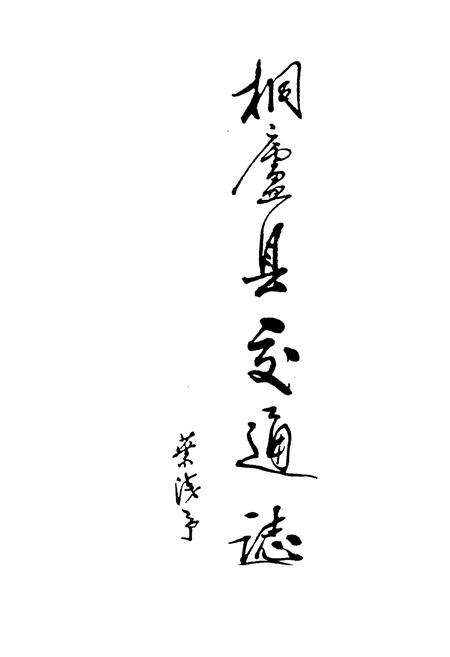 桐廬县交通誌
葉浅予